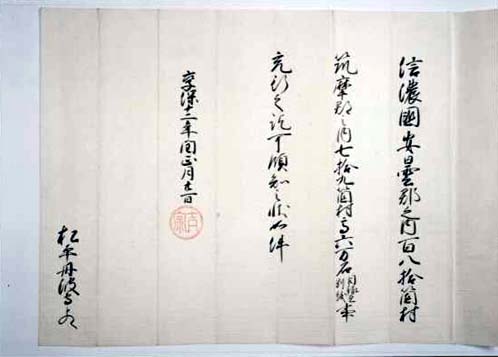 信濃國安曇郡之内百八拾箇村
筑摩郡之内七拾九箇村高六万石目録在別紙事
充行之訖可領知之状如件
享保十二年閏正月十一日
吉宗
松平丹波守とのへ